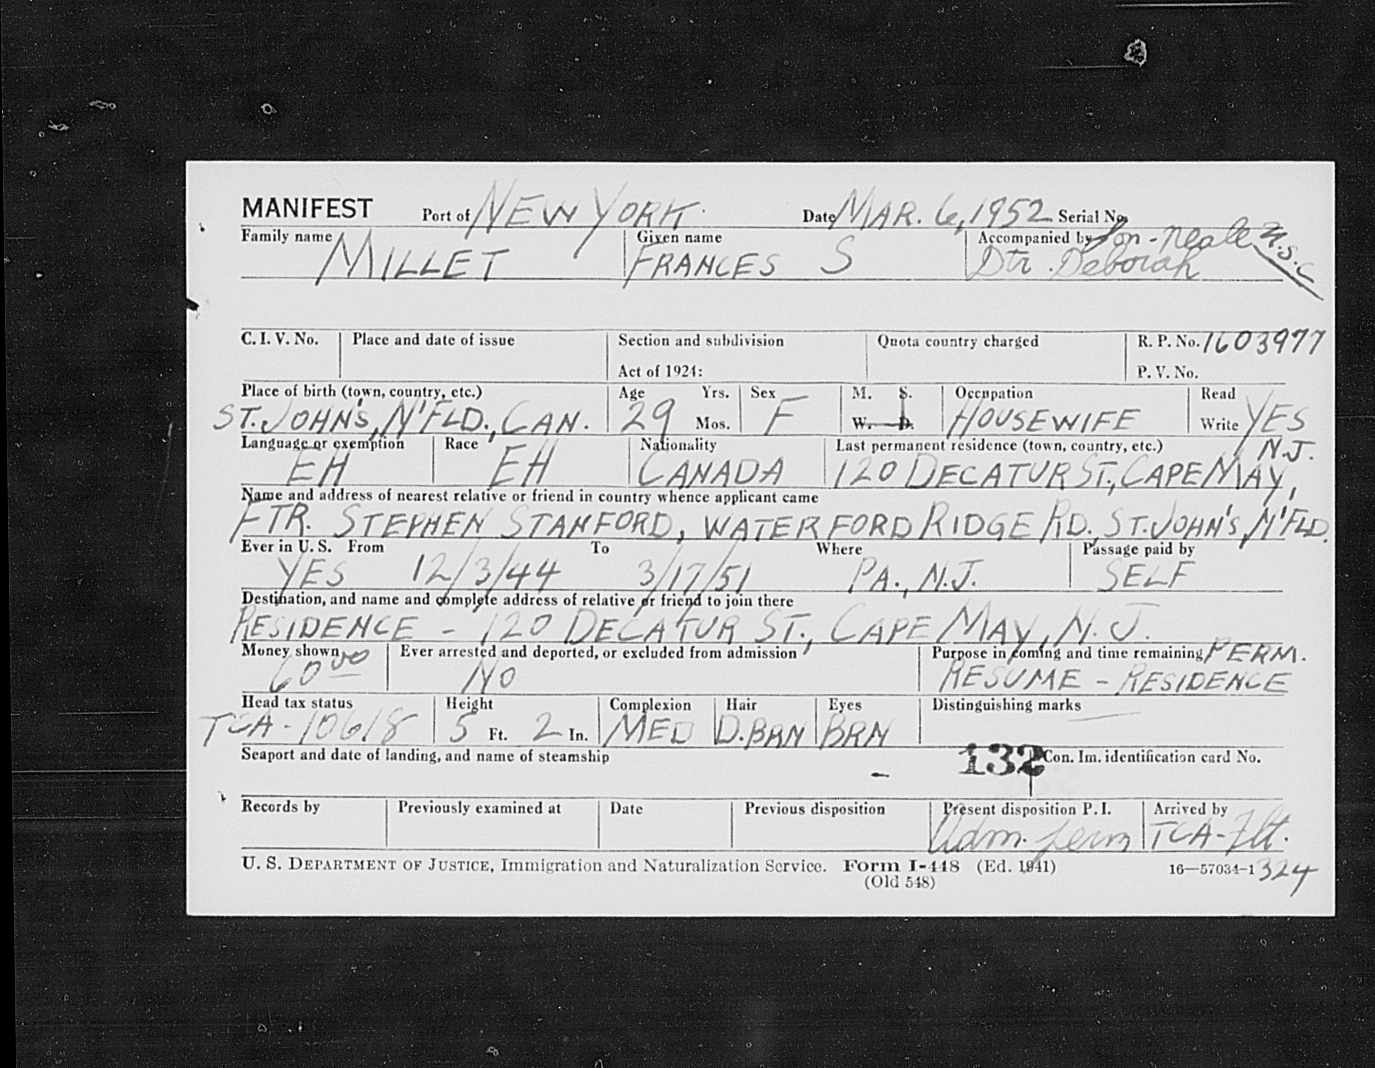 MANIFEST Port of NEW YORK. Date MAR. 6, 1952 Serial No.
Family name MILLET Given name FRANCES S Accompanied by Son - Neale U.S.C
Dtr. Deborah
C. I. V. No. Place and date of issue Section and subdivision Quota country charged R. P. No. 1603977
Act of 1924: P. V. No.
Place of birth (town, country, etc.) Age Yrs. Sex M. S. Occupation Read
ST. JOHN'S, N'FLD., CAN. 29 Mos. F W. D. HOUSEWIFE Write YES
Language or exemption Race Nationality Last permanent residence (town, country, etc.) N.J.
EH EH CANADA 120 DECATUR ST., CAPE MAY,
Name and address of nearest relative or friend in country whence applicant came
FTR. STEPHEN STANFORD, WATERFORD RIDGE RD. ST. JOHN'S, N'FLD.
Ever in U. S. From To Where Passage paid by
YES 12/3/44 3/17/51 PA., N.J. SELF
Destination, and name and complete address of relative or friend to join there
RESIDENCE - 120 DECATUR ST., CAPE MAY, N. J.
Money shown Ever arrested and deported, or excluded from admission Purpose in coming and time remaining PERM.
60 00 NO RESUME - RESIDENCE
Head tax status Height Complexion Hair Eyes Distinguishing marks
TCA - 10618 5 Ft. 2 In. MED D. BRN BRN
Seaport and date of landing, and name of steamship 132 Con. Im. identification card No.
Records by Previously examined at Date Previous disposition Present disposition P. I. Arrived by
Adm. perm TCA - Flt.
U. S. DEPARTMENT OF JUSTICE, Immigration and Naturalization Service. Form I-448 (Ed. 1941) 16—57034-1 324
(Old 548)